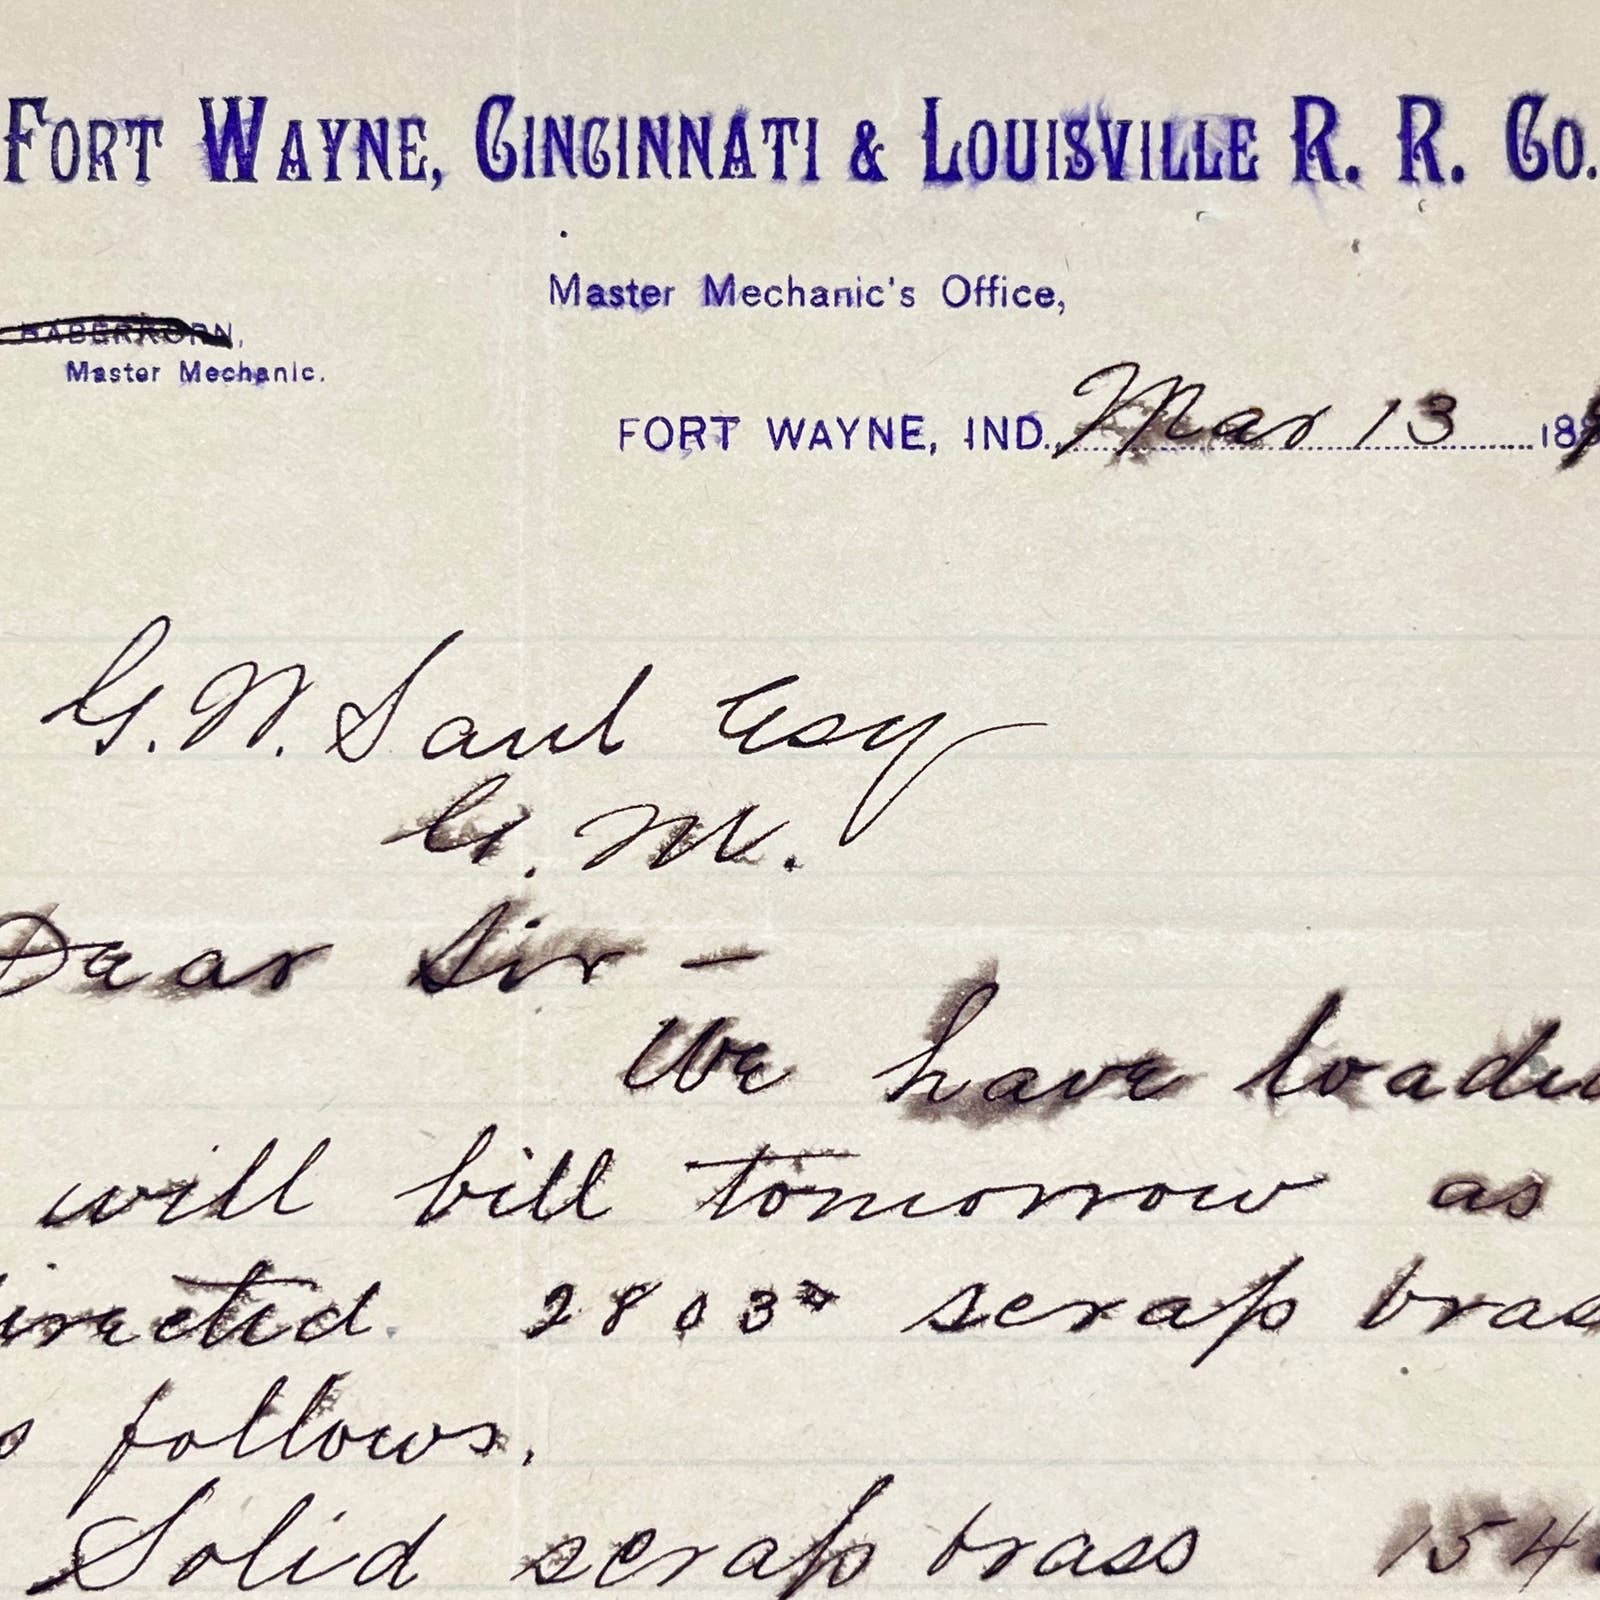 FORT WAYNE, CINCINNATI & LOUISVILLE R. R. CO.
Master Mechanic's Office,
HABERKORN,
Master Mechanic.
FORT WAYNE, IND., Mar 13 18
G. W. Saul Esq
G. M.
Dear Sir —
We have loaded
will bill tomorrow as
directed. 2803# scrap brass
as follows.
Solid scrap brass 154